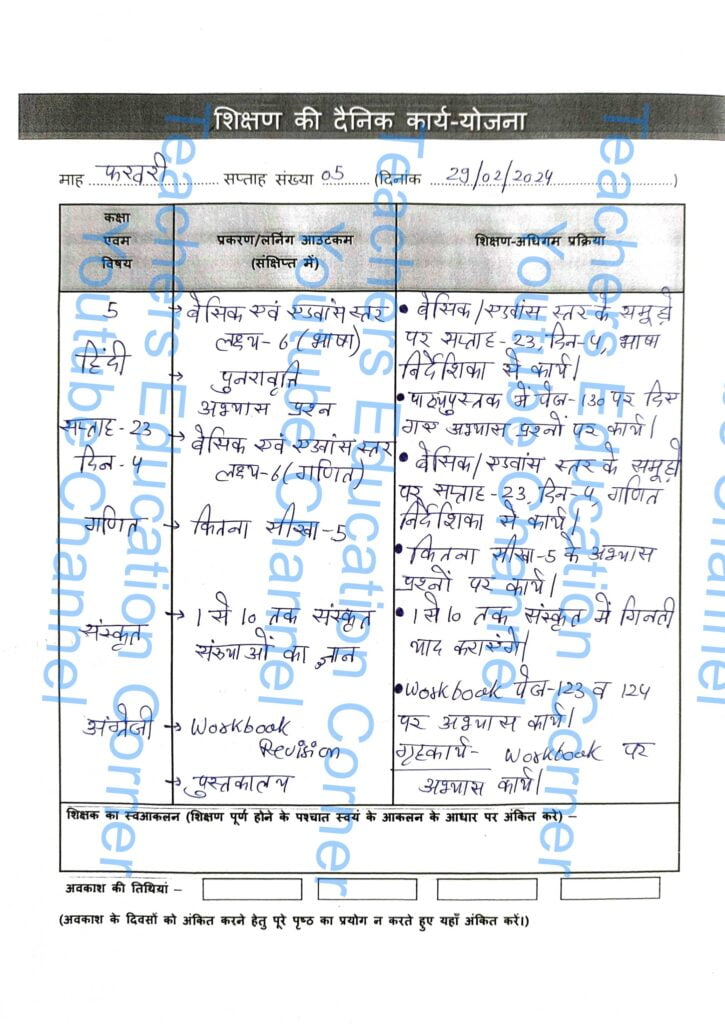 शिक्षण की दैनिक कार्य-योजना
माह फरवरी सप्ताह संख्या 05 (दिनांक 29/02/2024)
कक्षा एवम विषय
प्रकरण/लर्निंग आउटकम (संक्षिप्त में)
शिक्षण-अधिगम प्रक्रिया
5
हिंदी
सप्ताह-23
दिन-4
→ बेसिक एवं एडवांस स्तर
लक्ष्य-6 (भाषा)
→ पुनरावृत्ति
अभ्यास प्रश्न
• बेसिक/एडवांस स्तर के समूहों
पर सप्ताह-23, दिन-4, भाषा
निर्देशिका से कार्य।
• पाठ्यपुस्तक में पेज-130 पर दिए
गए अभ्यास प्रश्नों पर कार्य।
गणित
→ बेसिक एवं एडवांस स्तर
लक्ष्य-6(गणित)
→ कितना सीखा-5
• बेसिक/एडवांस स्तर के समूहों
पर सप्ताह-23, दिन-4, गणित
निर्देशिका से कार्य।
• कितना सीखा-5 के अभ्यास
प्रश्नों पर कार्य।
संस्कृत
→ 1 से 10 तक संस्कृत
संख्याओं का ज्ञान
• 1 से 10 तक संस्कृत में गिनती
याद कराएंगे।
अंग्रेजी
→ Workbook
Revision
→ पुस्तकालय
• Workbook पेज-123 व 124
पर अभ्यास कार्य।
गृहकार्य- Workbook पर
अभ्यास कार्य।
शिक्षक का स्वआकलन (शिक्षण पूर्ण होने के पश्चात स्वयं के आकलन के आधार पर अंकित करे) –
अवकाश की तिथियां –
(अवकाश के दिवसों को अंकित करने हेतु पूरे पृष्ठ का प्रयोग न करते हुए यहाँ अंकित करें।)
Teachers Education Corner
Youtube Channel
Teachers Education Corner
Youtube Channel
Teachers Education Corner
Youtube Channel